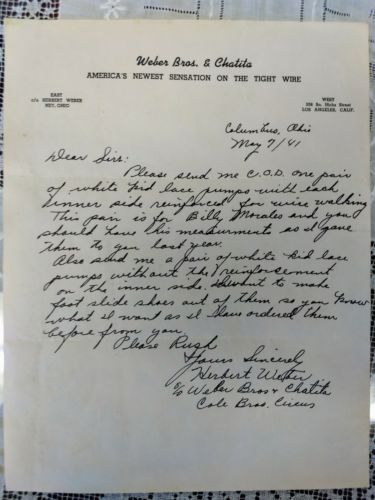 Weber Bros. & Chatita
AMERICA'S NEWEST SENSATION ON THE TIGHT WIRE
EAST
c/o HERBERT WEBER
NEY, OHIO
WEST
So. Hicks Street
LOS ANGELES, CALIF.
Columbus, Ohio
May 7/41
Dear Sirs:
Please send me C.O.D. one pair
of white kid lace pumps with each
inner side reinforced for wire walking
This pair is for Billy Morales and you
should have his measurments as I gave
them to you last year.
Also send me a pair of white kid lace
pumps without the reinforsement
on the inner side. I want to make
foot slide shoes out of them so you know
what I want as I have ordered them
before from you
Please Rush
Yours Sincerely
Herbert Weber
c/o Weber Bros & Chatita
Cole Bros. Circus